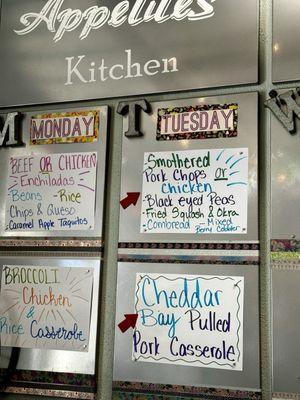 Appetites
Kitchen
M
MONDAY
BEEF OR CHICKEN
Enchiladas
Beans - Rice
Chips & Queso
Caramel Apple Taquitos
BROCCOLI
Chicken
&
Rice Casserole
T
TUESDAY
Smothered
Pork Chops or
Chicken
Black eyed Peas
Fried Squash & Okra
Cornbread - Mixed
Berry Cobbler
Cheddar
Bay Pulled
Pork Casserole
W